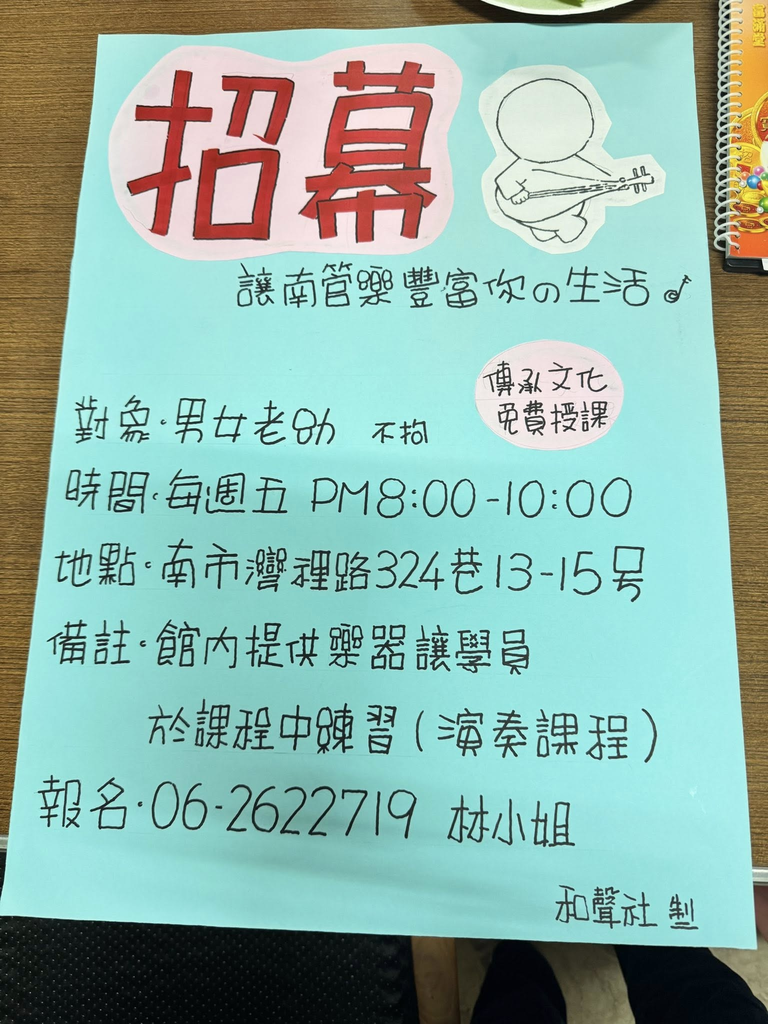 招幕
讓南管樂豐富你の生活
傳承文化
免費授課
對象·男女老幼 不拘
時間·每週五 PM8:00-10:00
地點·南市灣裡路324巷13-15號
備註·館內提供樂器讓學員
於課程中練習(演奏課程)
報名·06-2622719 林小姐
和聲社 製